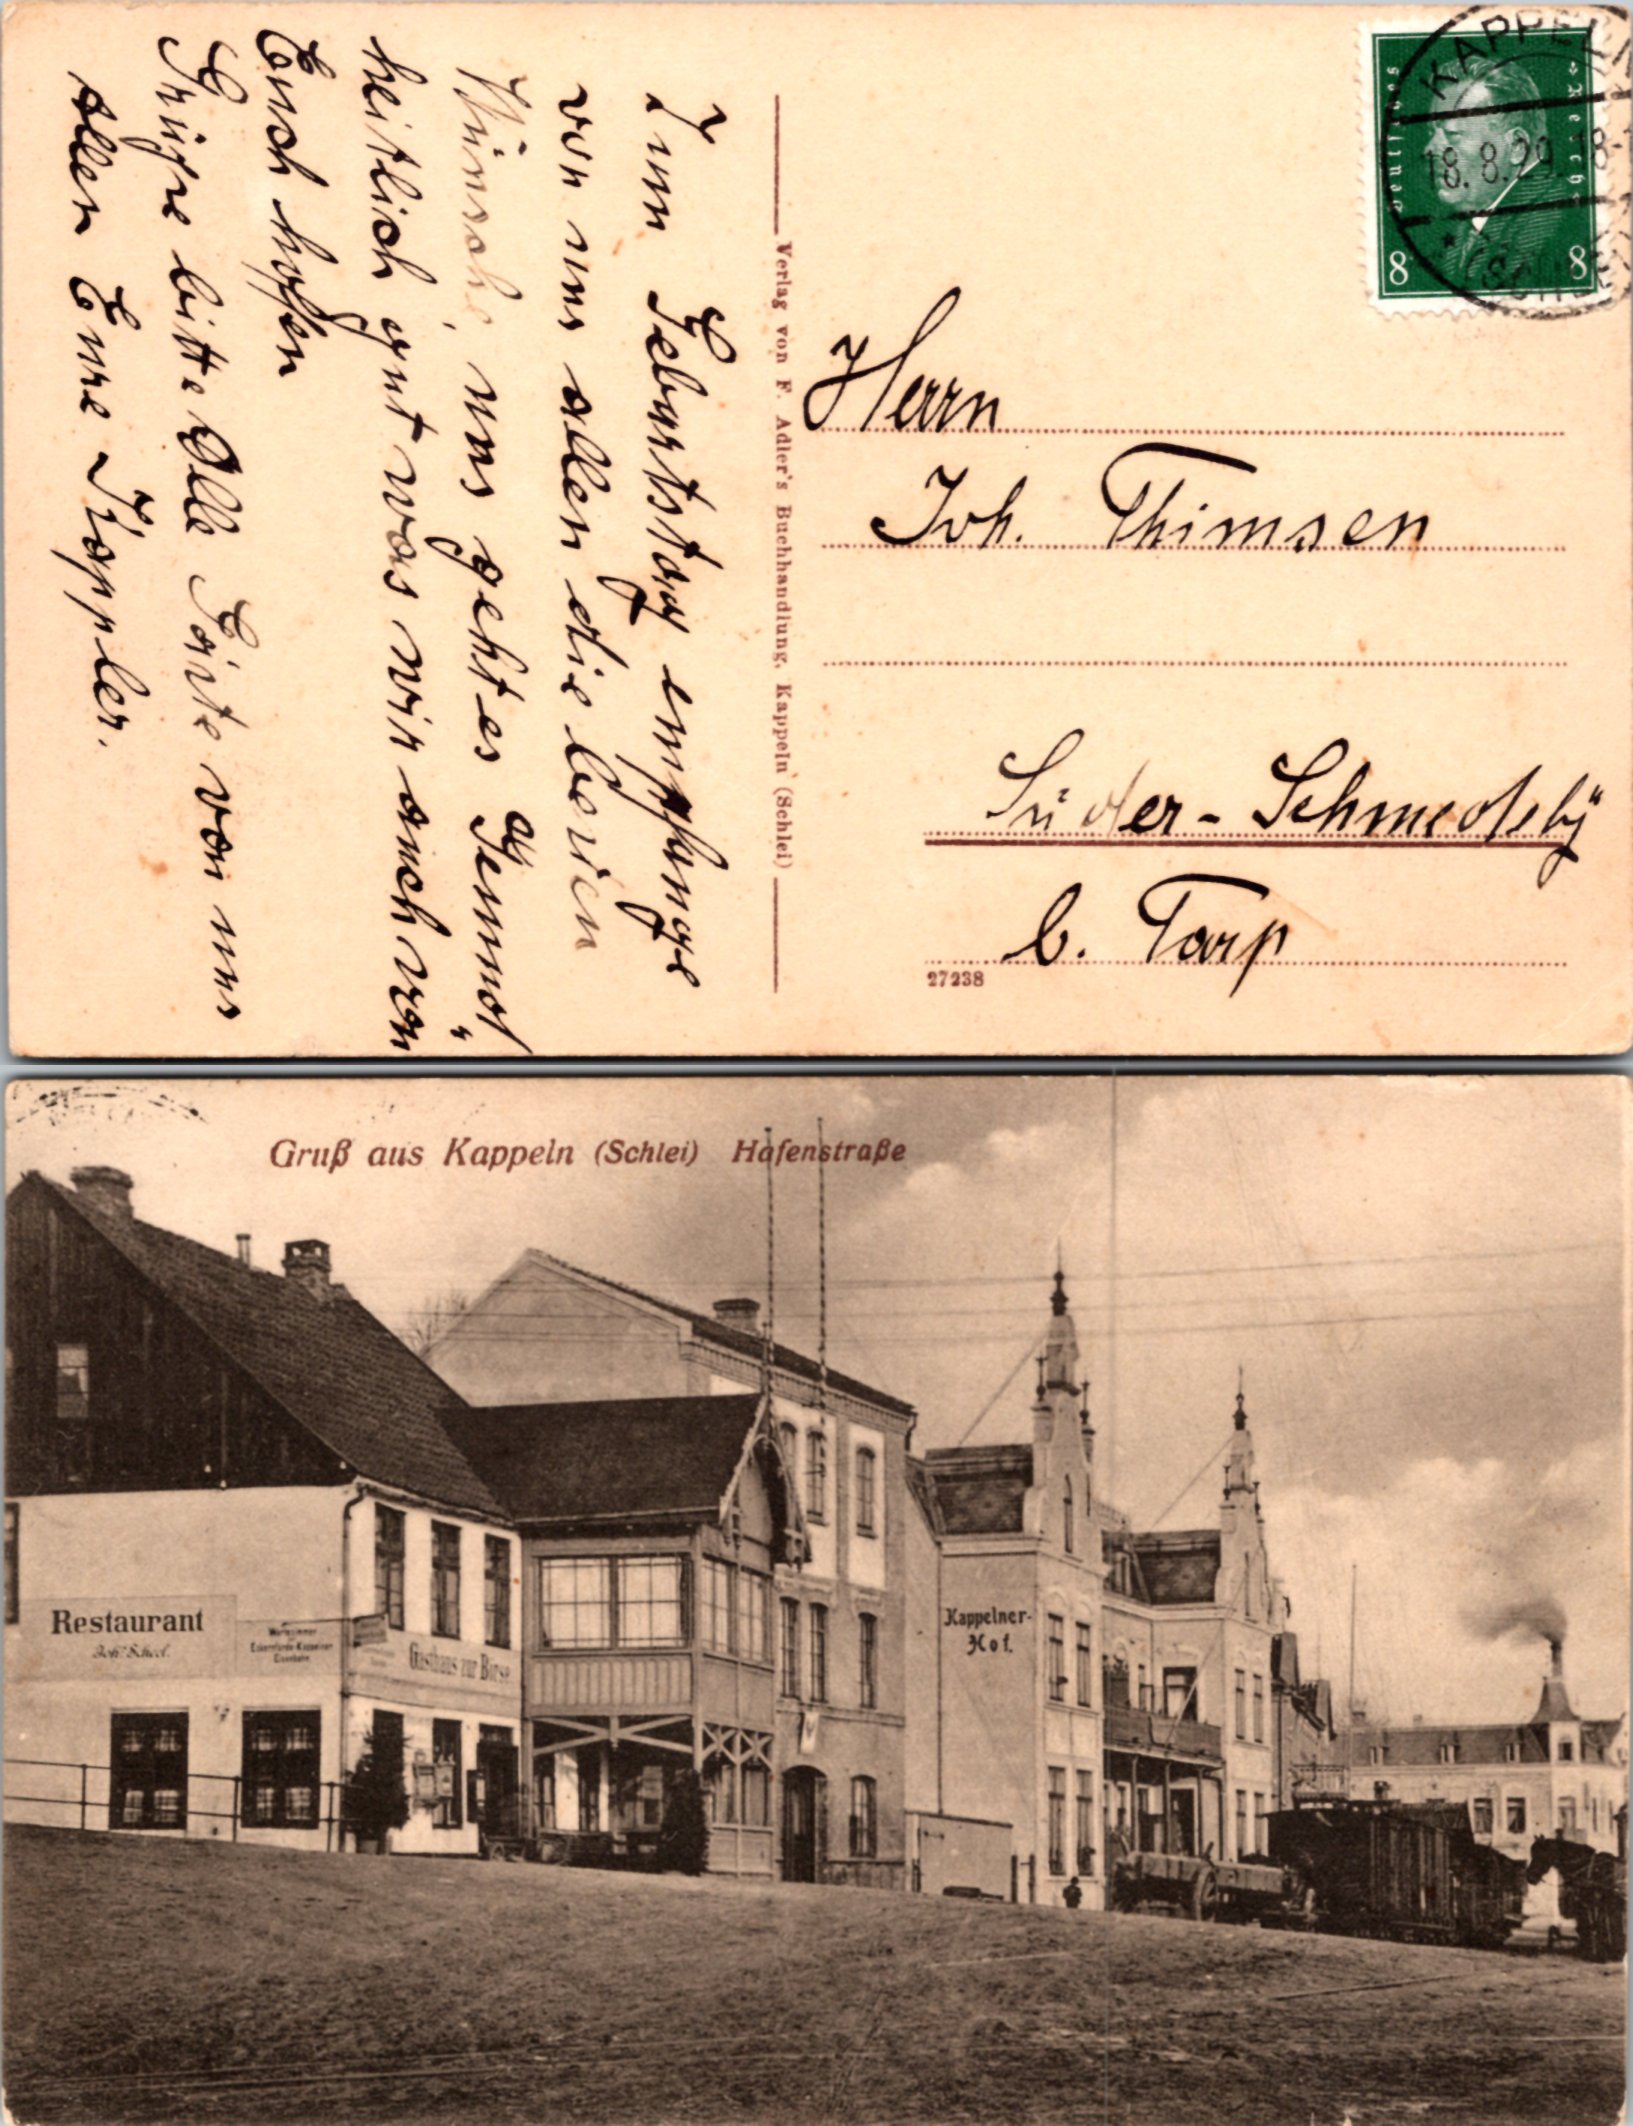 KAPPELN
18.8.29. 18-
(SCHLEI)
Deutsches Reich
8 8
Zum Geburtstag empfange
von uns allen die besten
Wünsche, uns geht es Gesund
heitlich gut was wir auch von
Euch hoffen
Grüße bitte Olle von uns
allen Eure Kappler.
Verlag von F. Adler's Buchhandlung, Kappeln (Schlei)
Herrn
Joh. Thimsen
Süder-Schmedeby
b. Tarp
27238
Gruß aus Kappeln (Schlei) Hafenstraße
Restaurant
Joh's Scheel.
Wartezimmer
Eckernförde-Kappelner
Eisenbahn
Gasthaus zur Börse
Kappelner-
Hof.